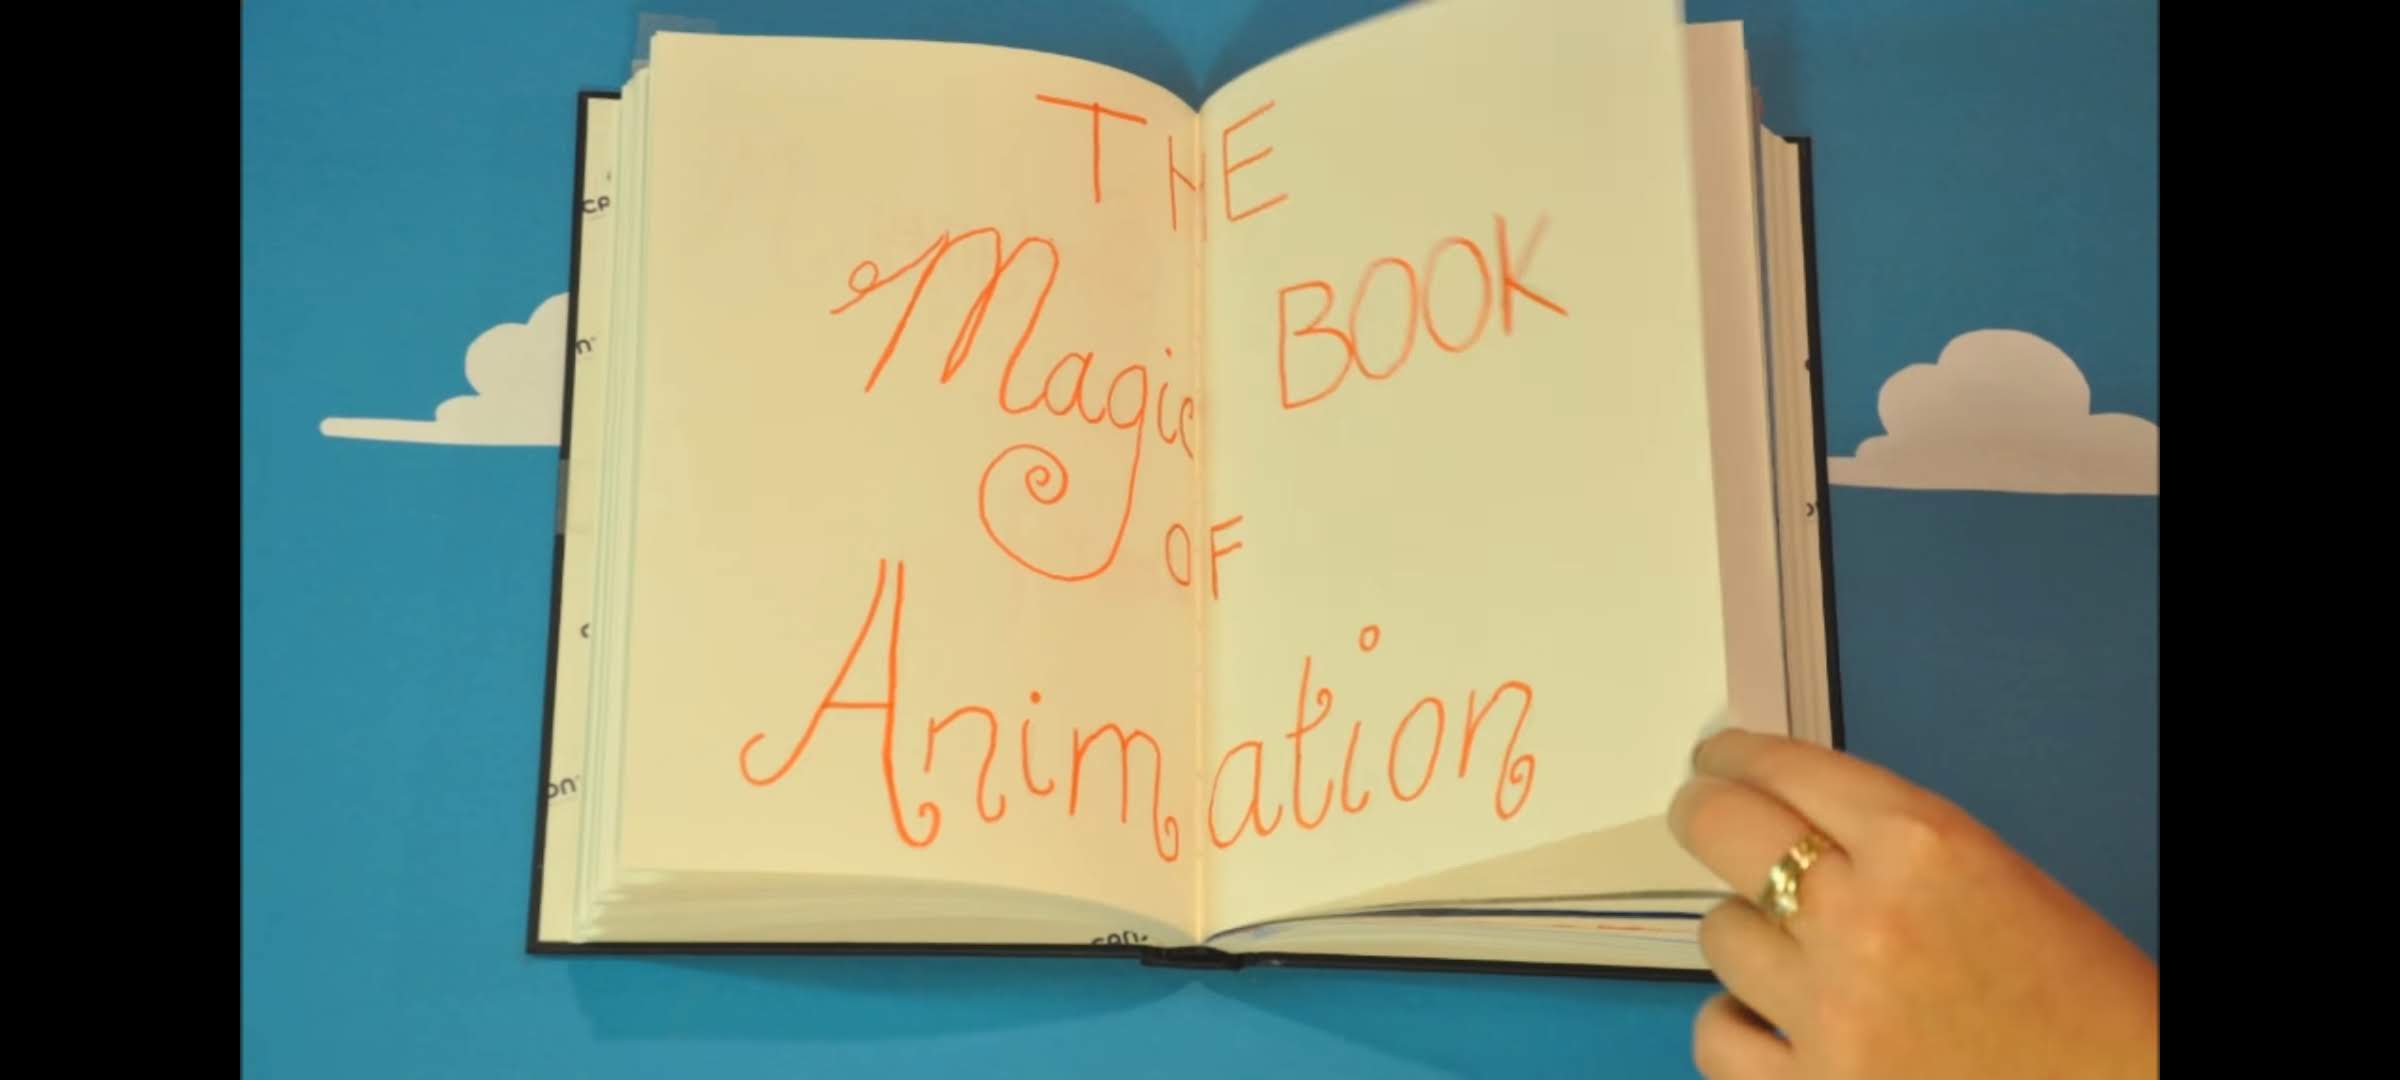 THE
Magic BOOK
OF
Animation